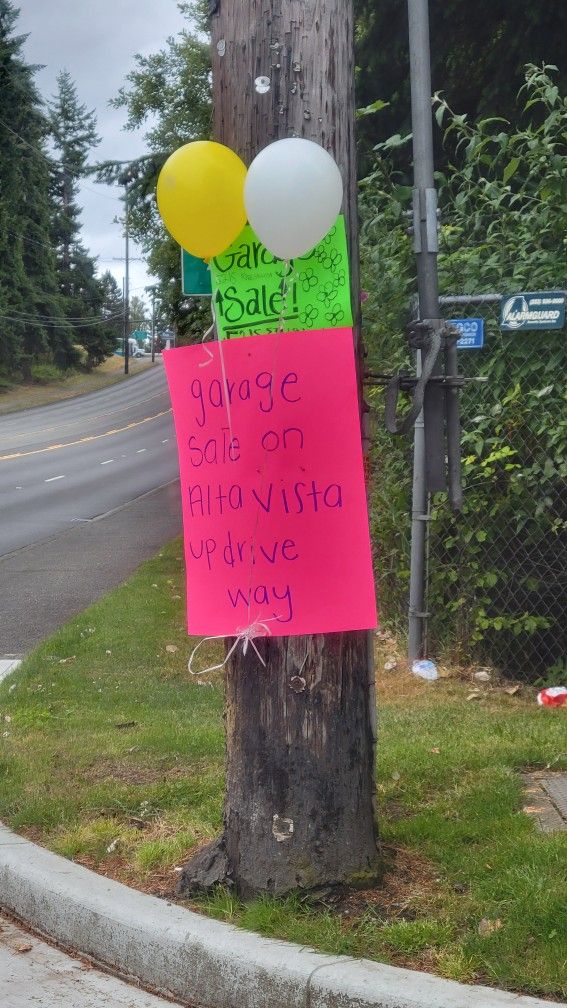 Garage
Sale!!
garage
sale on
Alta vista
up drive
way
ALARMGUARD